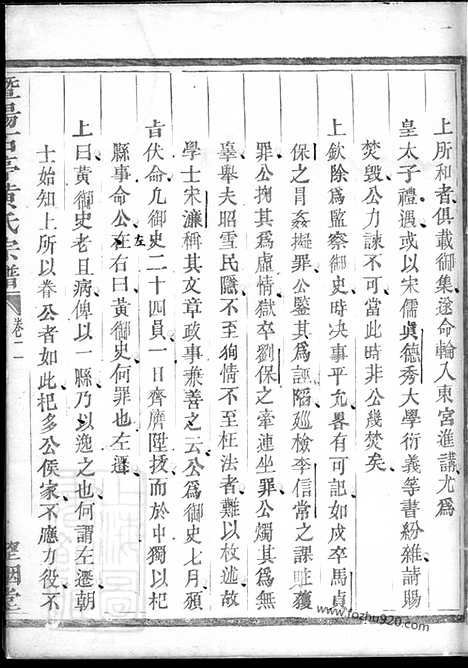 上所和者俱載御集遂命輪入東宮進講尤爲
皇太子禮遇或以宋儒眞德秀大學衍義等書紛雜請賜
焚毀公力諫不可當此時非公幾焚矣
上欽除爲監察御史時决事平允畧有可記如戍卒馬貞
保之冒姦擬罪公鑒其爲誣陷廵檢李信常之課賍獲
罪公掬其爲虛情獄卒劉保之牽連坐罪公燭其爲無
辜舉夫昭雪民隱不至狥情不至枉法者難以枚述故
學士宋濂稱其文章政事兼善之云公爲御史七月頒
旨伏命凢御史二十四員一日齊齊陞拔而中獨以杞
縣事命公左右曰黃御史何罪也左遷
左
上曰黃御史老且病俾以一縣乃以逸之也何謂左遷朝
士始知上所以眷公者如此杞多公侯家不應力役不
暨陽 黃氏宗譜
卷一
堂
www.fozhu920.com